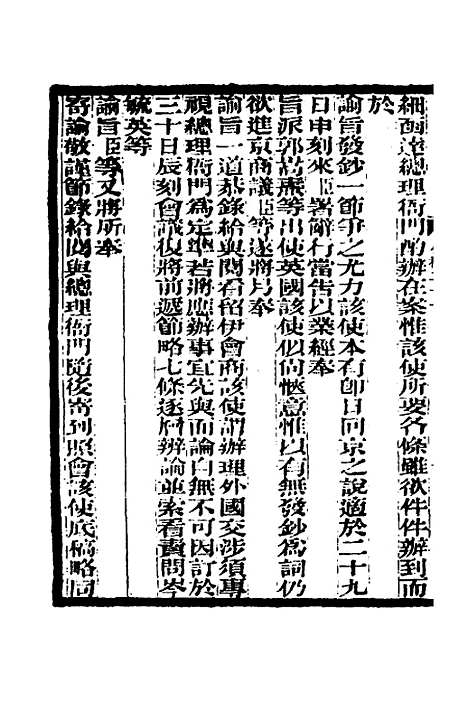 細函達總理衙門酌辦在案惟該使所要各條雖欲件件辦到而
於
諭旨發鈔一節爭之尤力該使本有卽日回京之說適於二十九
日申刻來臣署辭行當告以業經奉
旨派郭嵩燾等出使英國該使似尚愜意惟以有無發鈔爲詞仍
欲進京商議臣等遂將月奉
諭旨一道恭錄給與閱看留伊會商該使謂辦理外國交涉須專
視總理衙門爲定準若將應辦事宜先與面論自無不可因訂於
三十日辰刻會議復將前遞節略七條逐層辨論並索看責問岑
毓英等
諭旨臣等又將所奉
寄諭敬謹節錄給閱與總理衙門隨後寄到照會該使底稿略同